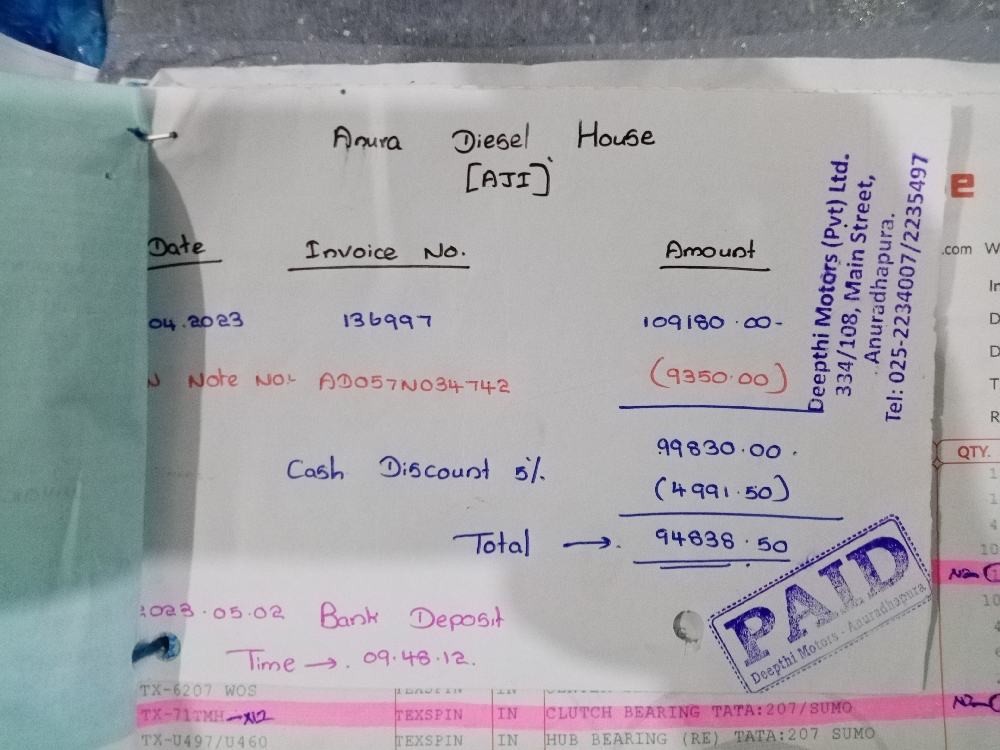 Anura Diesel House
[AJI]
Date Invoice No. Amount
04.2023 136997 109180.00-
Note No:- AD057N034742 (9350.00)
99830.00.
Cash Discount 5%.
(4991.50)
Total →. 94838.50
2023.05.02 Bank Deposit
Time →. 09.48.12.
Deepthi Motors (Pvt) Ltd.
334/108, Main Street,
Anuradhapura.
Tel: 025-2234007/2235497
PAID
Deepthi Motors - Anuradhapura
e
.com W
In
D
D
T
R
QTY.
TX-6207 WOS
TX-71TMH TEXSPIN IN CLUTCH BEARING TATA:207/SUMO
TX-U497/U460 TEXSPIN IN HUB BEARING (RE) TATA:207 SUMO